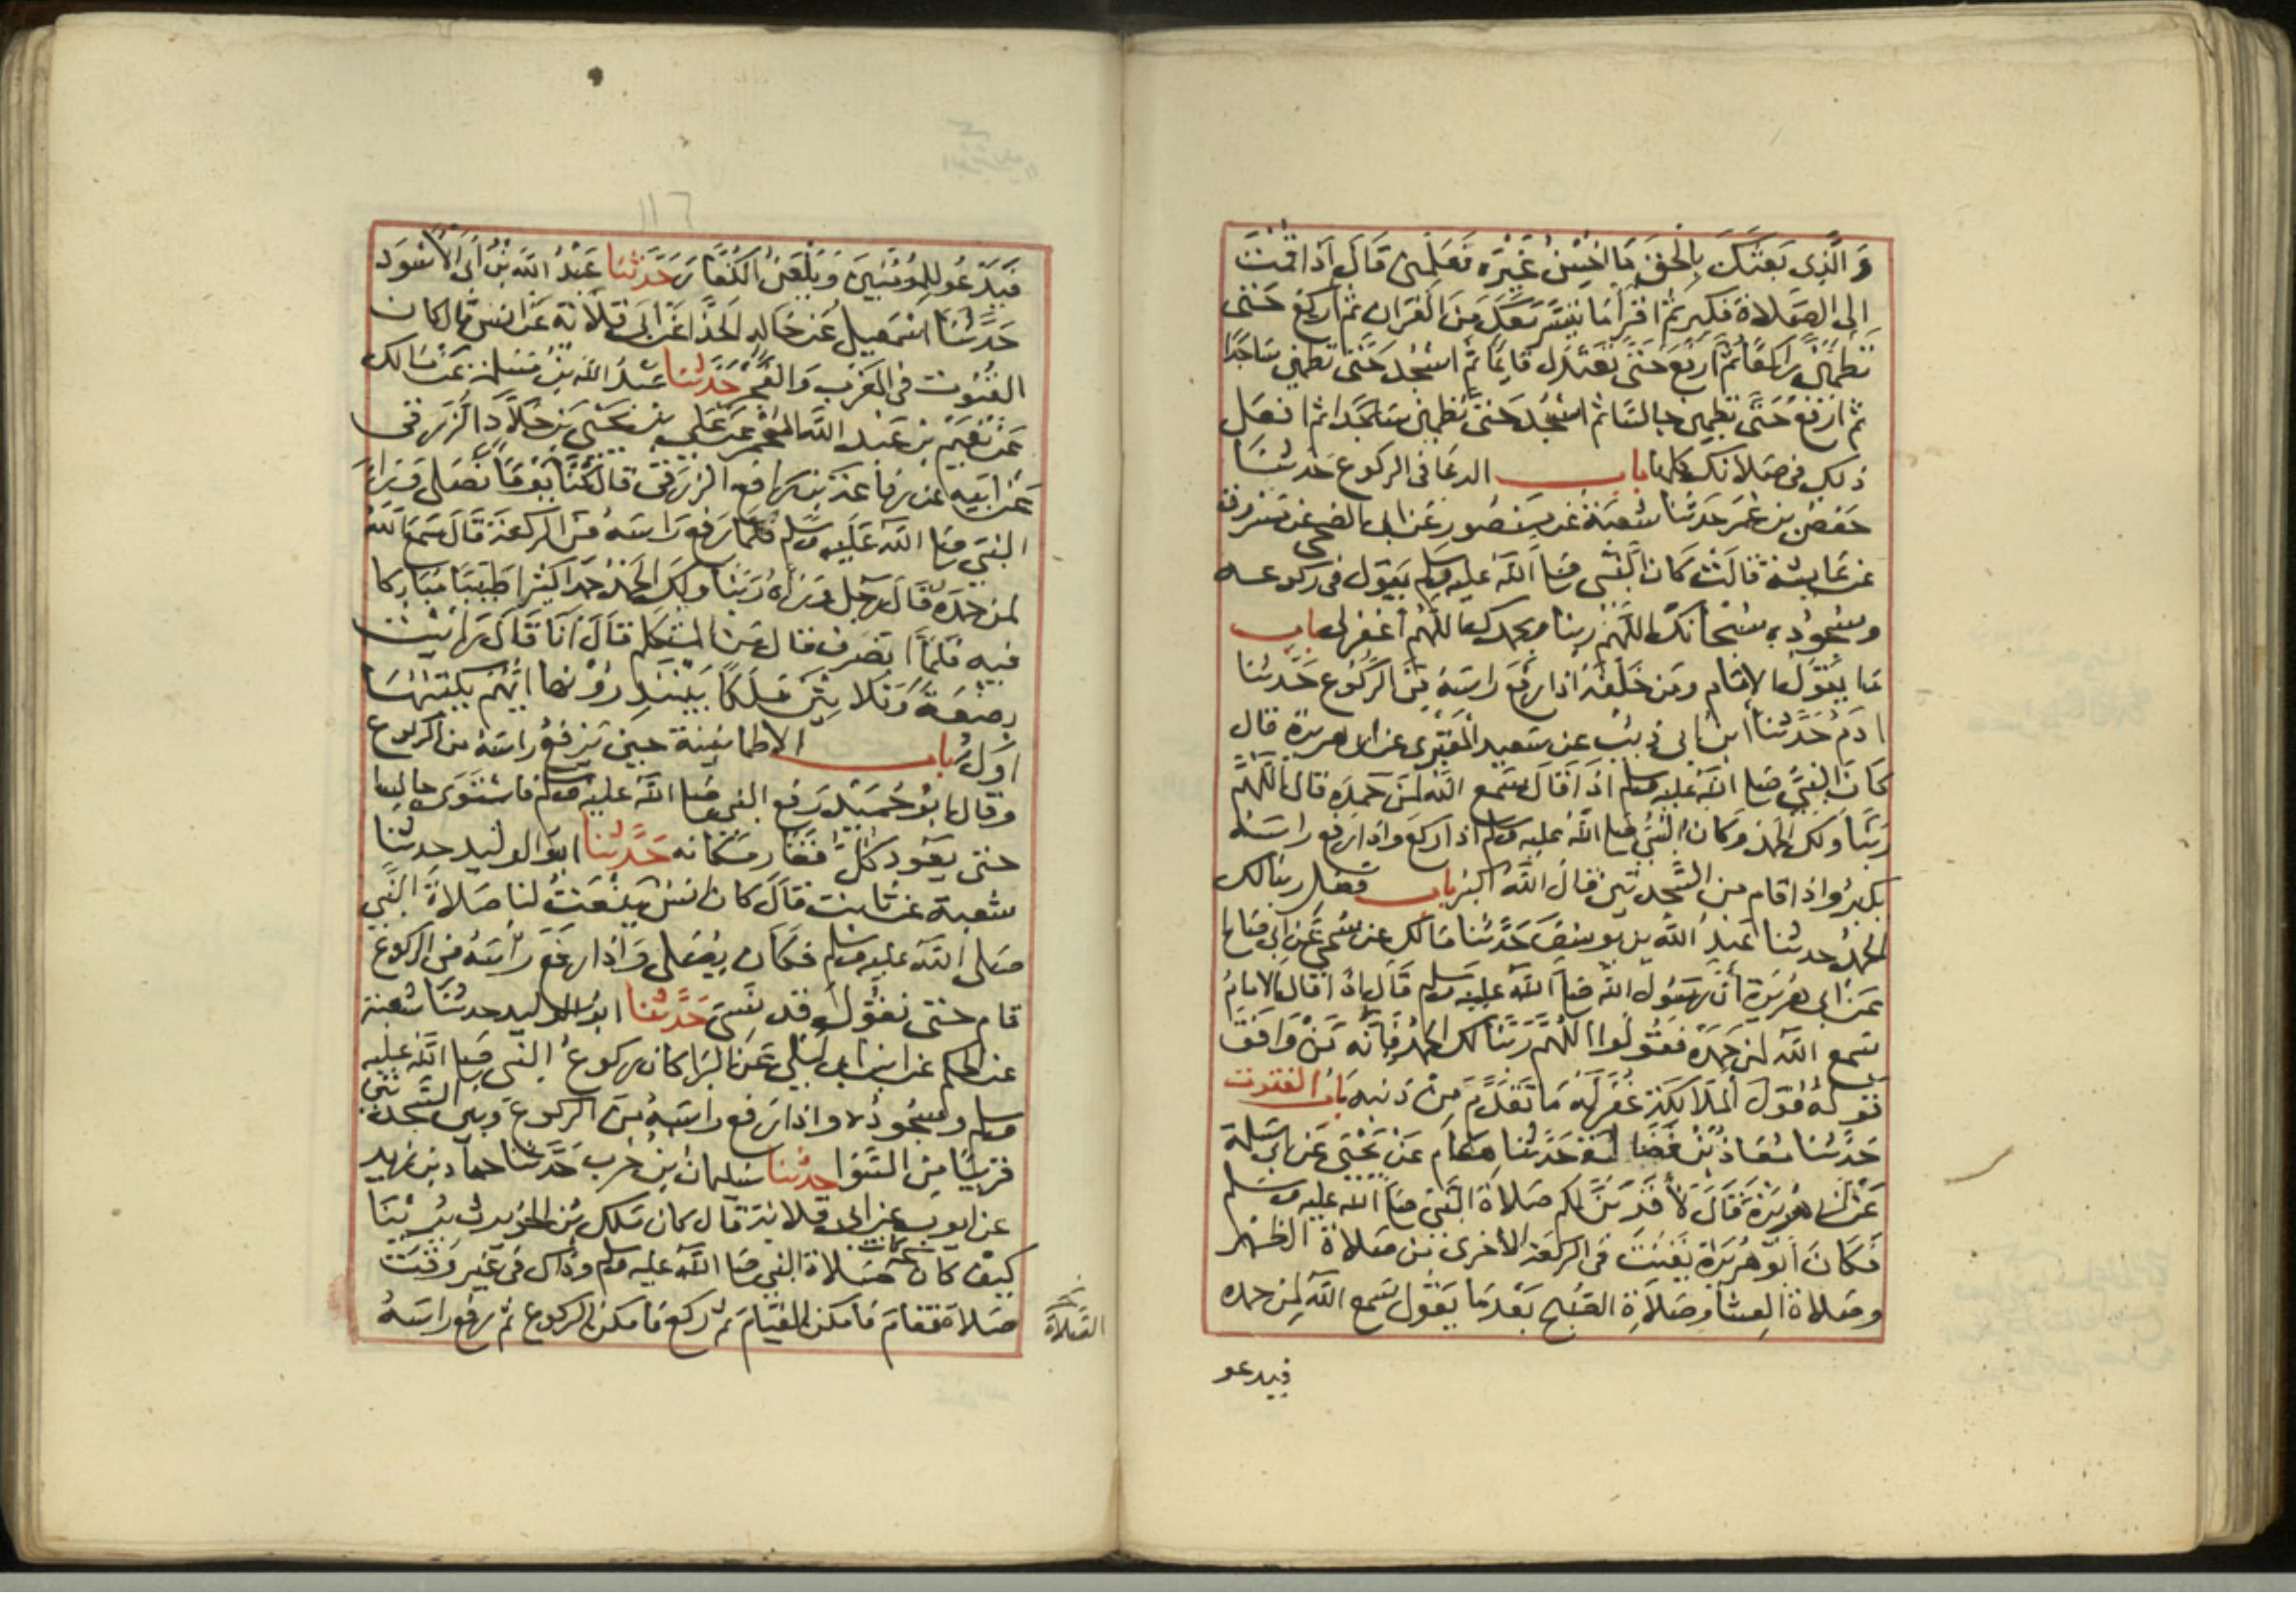 وَالَّذِي بَعَثَكَ بِالْحَقِّ مَا أُحْسِنُ غَيْرَهُ فَعَلِّمْنِي قَالَ إِذَا قُمْتَ
إلى الصلاة فكبر ثم اقرأ ما تيسر معك من القرآن ثم اركع حتى
تطمئن راكعا ثم ارفع حتى تعتدل قايما ثم اسجد حتى تطمين ساجدا
ثم ارفع حتى تطمين جالسا ثم اسجد حتى تطمين ساجدا ثم افعل
ذلك في صلاتك كلها باب الدعا في الركوع حدثنا
حفص بن عمر حدثنا شعبة عن منصور عن ابي الضحى عن مسروق
عن عايشة قالت كان النبي صلى الله عليه وسلم يقول في ركوعه
وسجوده سبحانك اللهم ربنا وبحمدك اللهم اغفر لي باب
ما يقول الامام ومن خلفه اذا رفع راسه من الركوع حدثنا
ادم حدثنا ابن ابي ذيب عن سعيد المقبري عن ابي هريرة قال
كان النبي صلى الله عليه وسلم اذا قال سمع الله لمن حمده قال اللهم
ربنا ولك الحمد وكان النبي صلى الله عليه وسلم اذا ركع واذا رفع راسه
يكبر واذا قام من السجدتين قال الله اكبر باب فضل ربنا لك
الحمد حدثنا عبد الله بن يوسف حدثنا مالك عن سمي عن ابي صالح
عن ابي هريرة أن رسول الله صلى الله عليه وسلم قال اذا قال الامام
سمع الله لمن حمده فقولوا اللهم ربنا لك الحمد فانه من وافق
قوله قول الملايكة غفر له ما تقدم من ذنبه باب القنوت
حدثنا معاذ بن فضالة حدثنا هشام عن يحيى عن ابي سلمة
عن ابي هريرة قال لأقربن لكم صلاة النبي صلى الله عليه وسلم
فكان ابو هريرة يقنت في الركعة الاخرى من صلاة الظهر
وصلاة العشا وصلاة الصبح بعدما يقول سمع الله لمن حمده
فيدعو
١١٦
فيدعو للمومنين ويلعن الكفار حدثنا عبد الله بن أبي الأسود
حدثنا اسمعيل عن خالد الحذا عن ابي قلابة عن انس قال كان
القنوت في المغرب والفجر حدثنا عبد الله بن مسلمة عن مالك
عن نعيم بن عبد الله المجمر عن علي بن يحيى بن خلاد الزرقي
عن ابيه عن رفاعة بن رافع الزرقي قال كنا يوما نصلي ورا
النبي صلى الله عليه وسلم فلما رفع راسه من الركعة قال سمع الله
لمن حمده قال رجل وراه ربنا ولك الحمد حمدا كثيرا طيبا مباركا
فيه فلما انصرف قال من المتكلم قال انا قال رايت
بضعة وثلاثين ملكا يبتدرونها ايهم يكتبها
اول باب الاطمانينة حين يرفع راسه من الركوع
وقال ابو حميد رفع النبي صلى الله عليه وسلم فاستوى جالسا
حتى يعود كل فقار مكانه حدثنا ابو الوليد حدثنا
شعبة عن ثابت قال كان انس ينعت لنا صلاة النبي
صلى الله عليه وسلم فكان يصلي واذا رفع رأسه من الركوع
قام حتى نقول قد نسي حدثنا ابو الوليد حدثنا شعبة
عن الحكم عن ابن ابي ليلى عن البرا كان ركوع النبي صلى الله عليه
وسلم وسجوده واذا رفع راسه من الركوع وبين السجدتين
قريبا من السوا حدثنا سليمان بن حرب حدثنا حماد بن زيد
عن ايوب عن ابي قلابة قال كان ملك بن الحويرث يرينا
كيف كان صلاة النبي صلى الله عليه وسلم وذاك في غير وقت
صلاة فقام فامكن القيام ثم ركع فامكن الركوع ثم رفع راسه
الصلاة